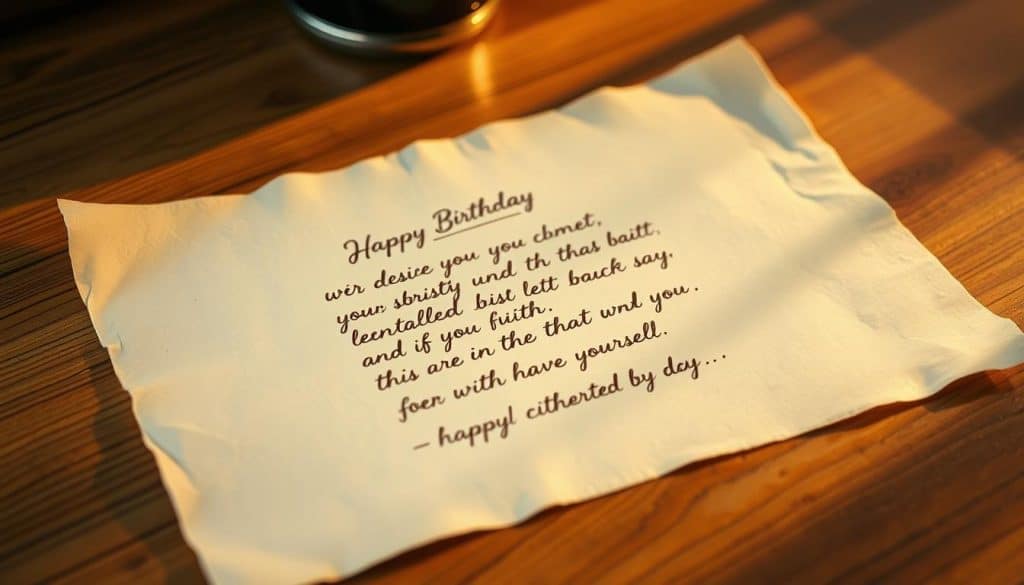 Happy Birthday
wėr desice you you cbmet,
your sbristy und th thas baitt,
lecntalled bist lett bauck say,
and if you fuith.
this are in the that wnd you.
foer with have yoursell.
– happyl citherted by dcy...